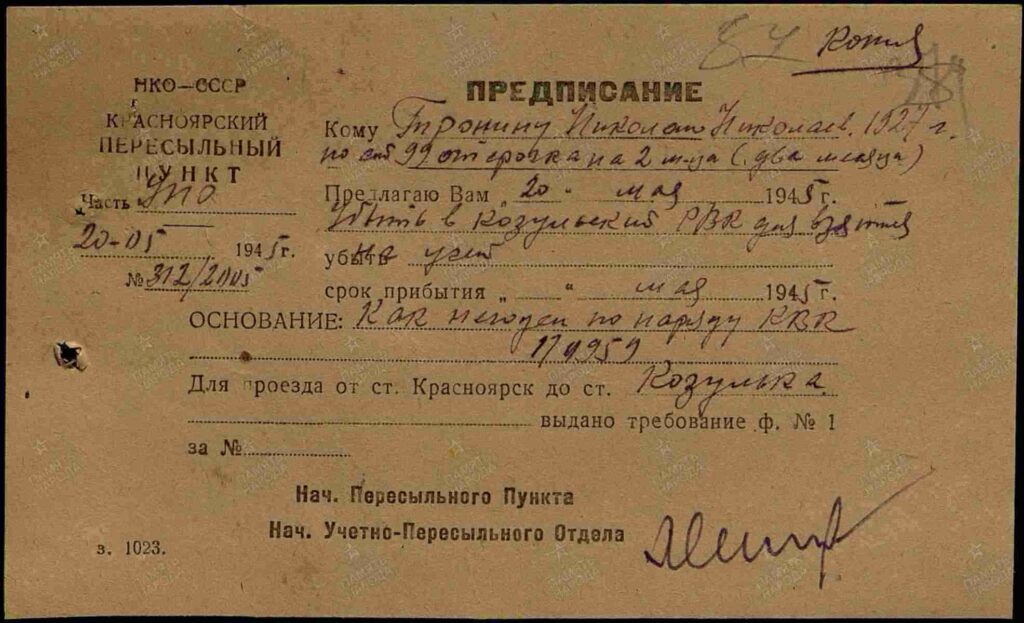 Копия
НКО—СССР
КРАСНОЯРСКИЙ
ПЕРЕСЫЛЬНЫЙ
ПУНКТ
Часть упо
20-05 1945 г.
№ 312/2005
ПРЕДПИСАНИЕ
Кому Тронину Николаю Николаев. 1927 г.
по ст 99 отсрочка на 2 м-ца (два месяца)
Предлагаю Вам „20“ мая 1945 г.
убыть в Козульский РВК для взятия
убыть на учет
срок прибытия „ “ мая 1945 г.
ОСНОВАНИЕ: Как негоден по наряду КВК
Для проезда от ст. Красноярск до ст. Козулька.
выдано требование ф. № 1
за №
Нач. Пересыльного Пункта
Нач. Учетно-Пересыльного Отдела
з. 1023.
ПАМЯТЬ НАРОДА